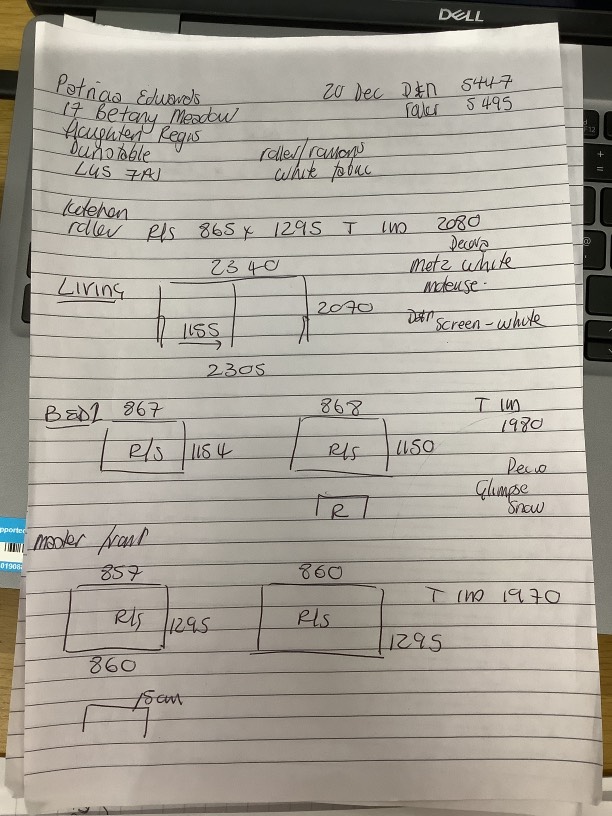 DELL
Patricia Edwards 20 Dec D&n 5447
17 Betany Meadow Faber 5495
Haughten Regis
Dunstable roller/romans
LU5 7AJ white fabric
kitchen
roller R/s 865 x 1295 T IM 2080
Decora
2340 Metz white
Living moteuse.
2070
1155 D&n Screen-white
2305
BED1 867 868 T IM
1980
R/s 1154 R/s 1150
Deco
Glimpse
Snow
R
master front
857 860
T IM 1970
R/s 1295 R/s
1295
860
15cm
pported